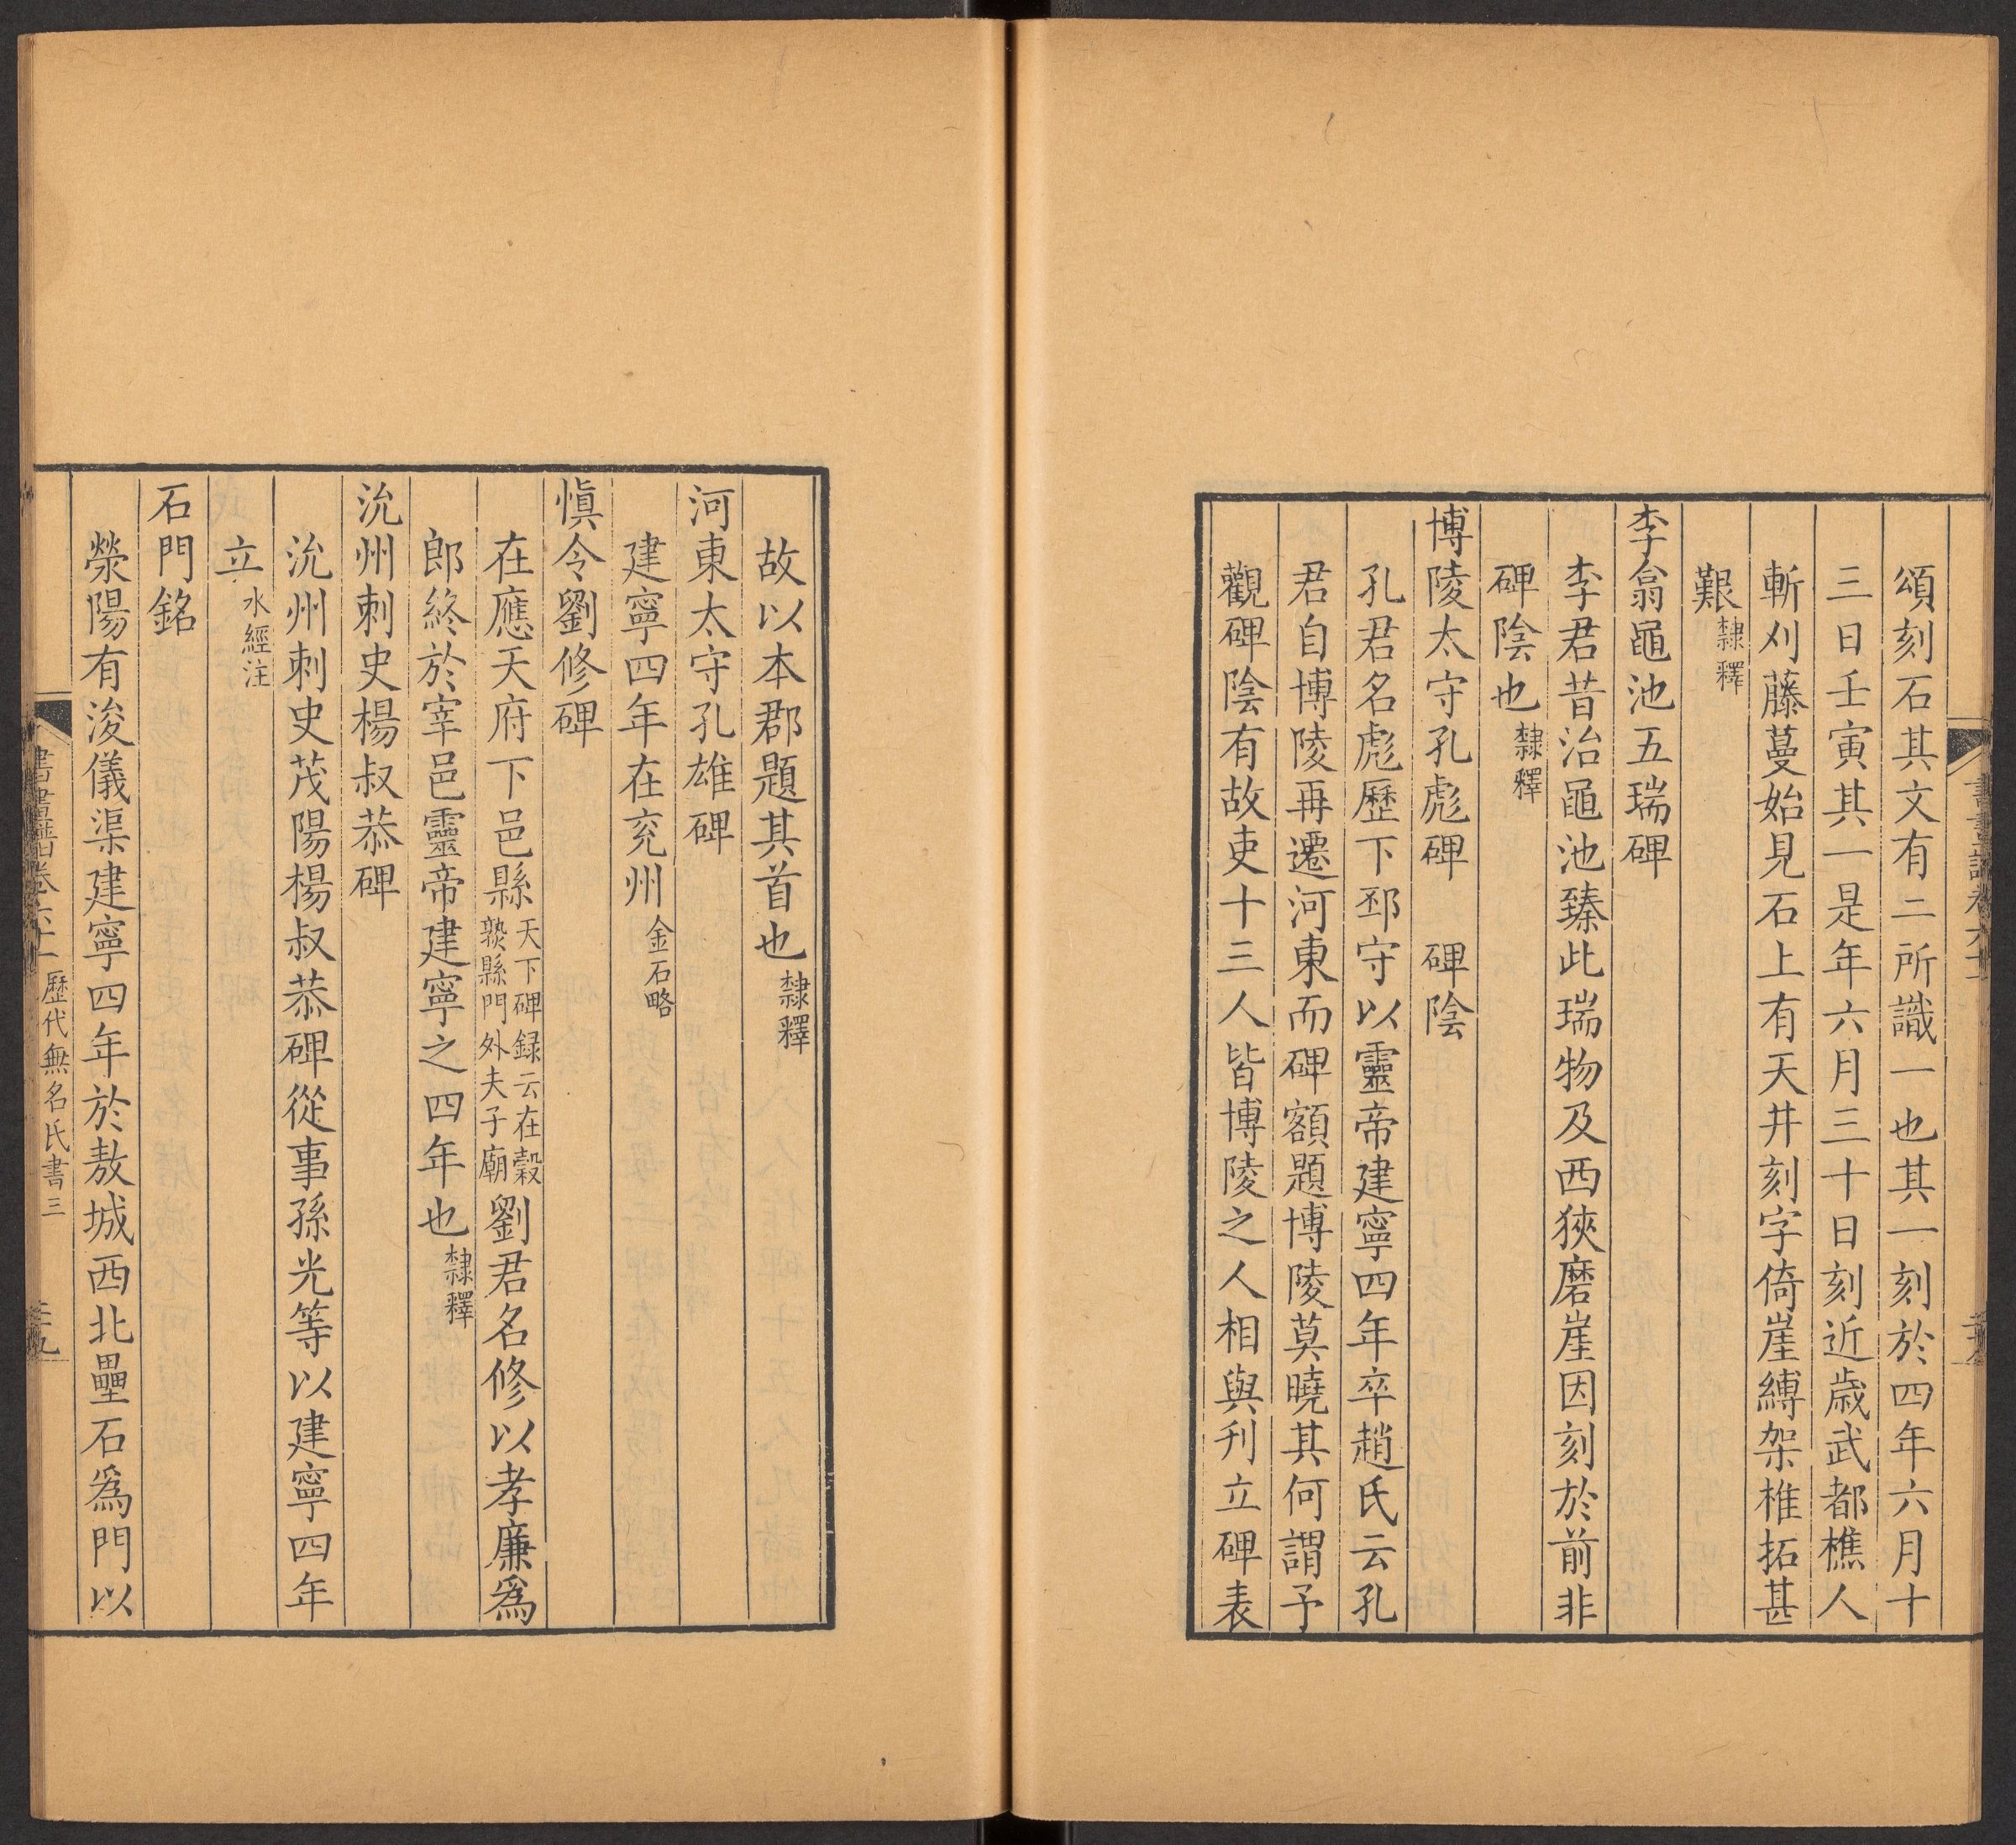 頌刻石其文有二所識一也其一刻於四年六月十
三日壬寅其一是年六月三十日刻近歲武都樵人
斬刈藤蔓始見石上有天井刻字倚崖縛架椎拓甚
艱隸釋
李翕黽池五瑞碑
李君昔治黽池臻此瑞物及西狹磨崖因刻於前非
碑陰也隸釋
博陵太守孔彪碑 碑陰
孔君名彪歷下邳守以靈帝建寧四年卒趙氏云孔
君自博陵再遷河東而碑額題博陵莫曉其何謂予
觀碑陰有故吏十三人皆博陵之人相與刊立碑表
故以本郡題其首也隸釋
河東太守孔雄碑
建寧四年在兖州金石略
慎令劉修碑
在應天府下邑縣天下碑録云在穀熟縣門外夫子廟劉君名修以孝廉爲
郎終於宰邑靈帝建寧之四年也隸釋
沇州刺史楊叔恭碑
沇州刺史茂陽楊叔恭碑從事孫光等以建寧四年
立水經注
石門銘
滎陽有浚儀渠建寧四年於敖城西北壘石爲門以
書畫譜卷六十一歷代無名氏書三